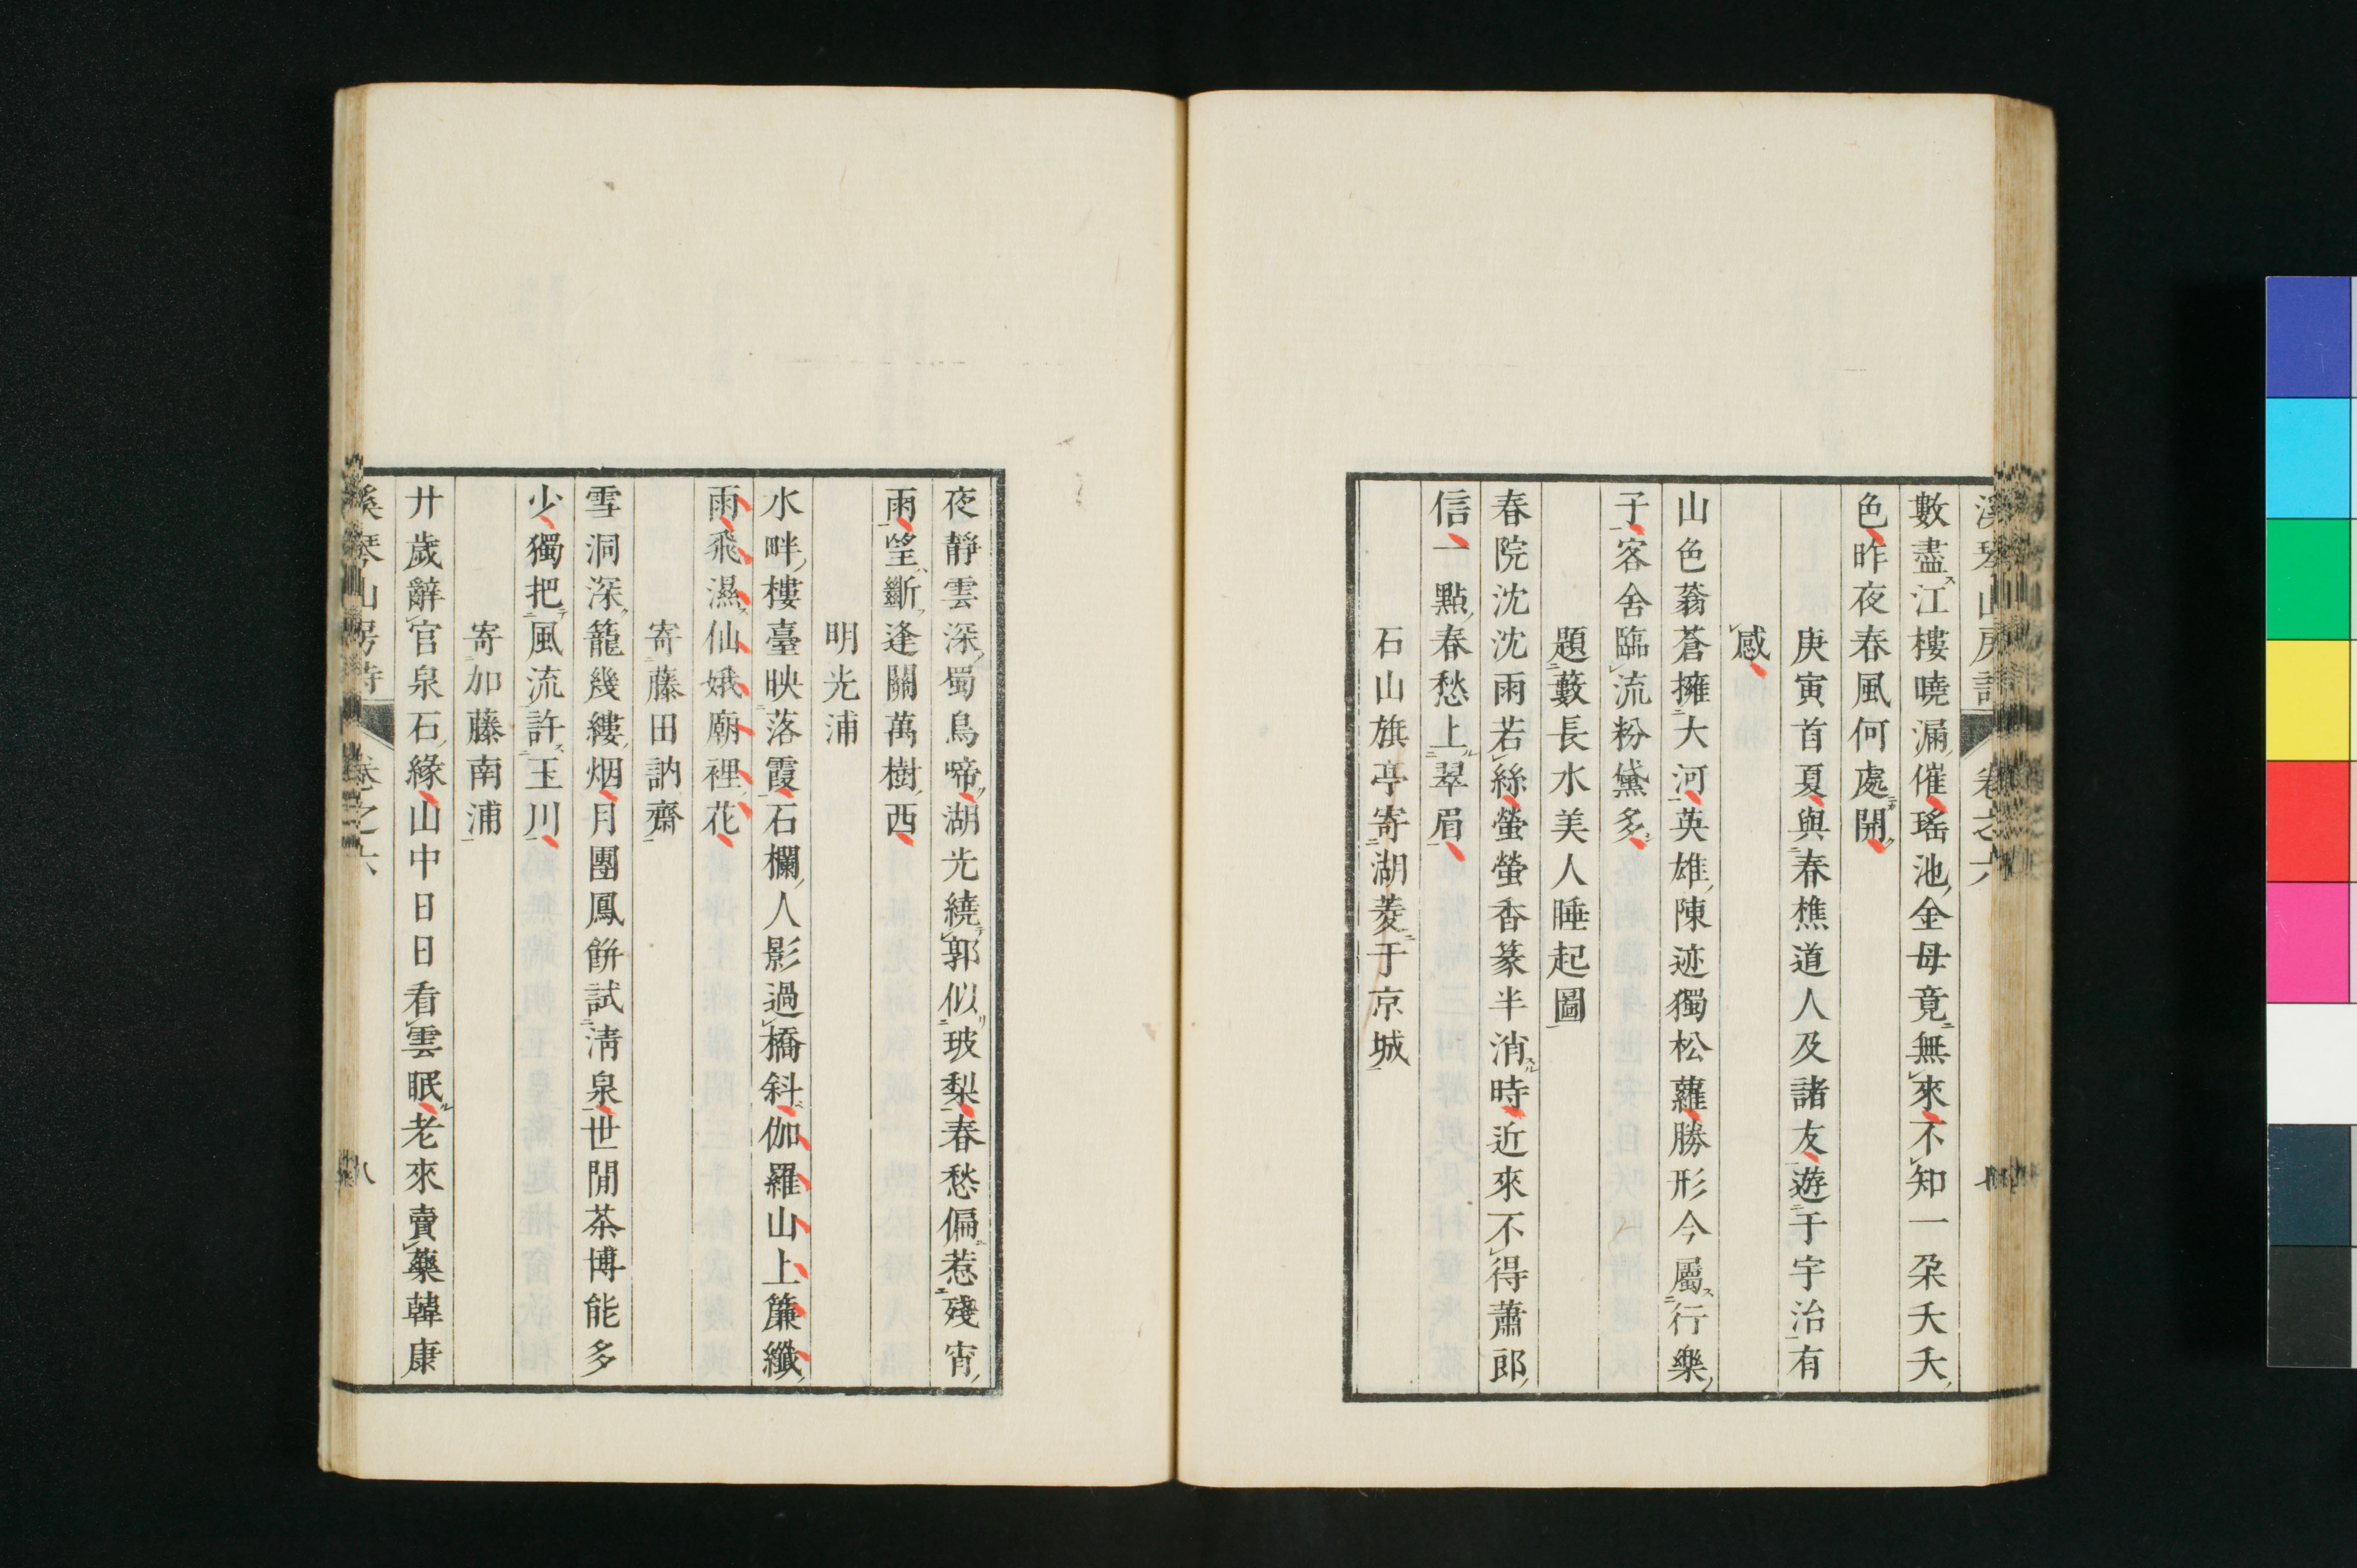 溪琴山房詩 卷之六 七
數盡江樓曉漏催瑤池金母竟無來不知一朶夭夭
色昨夜春風何處開
庚寅首夏與春樵道人及諸友遊于宇治有
感
山色蓊蒼擁大河英雄陳迹獨松蘿勝形今屬行樂
子客舍臨流粉黛多
題藪長水美人睡起圖
春院沈沈雨若絲螢螢香篆半消時近來不得蕭郎
信一點春愁上翠眉
石山旗亭寄湖菱于京城
夜靜雲深蜀鳥啼湖光繞郭似玻梨春愁偏惹殘宵
雨望斷逢關萬樹西
明光浦
水畔樓臺映落霞石欄人影過橋斜伽羅山上簾纖
雨飛濕仙娥廟裡花
寄藤田訥齋
雪洞深籠幾縷烟月團鳳餅試淸泉世閒茶博能多
少獨把風流許玉川
寄加藤南浦
廿歲辭官泉石緣山中日日看雲眠老來賣藥韓康
溪琴山房詩 卷之六 八